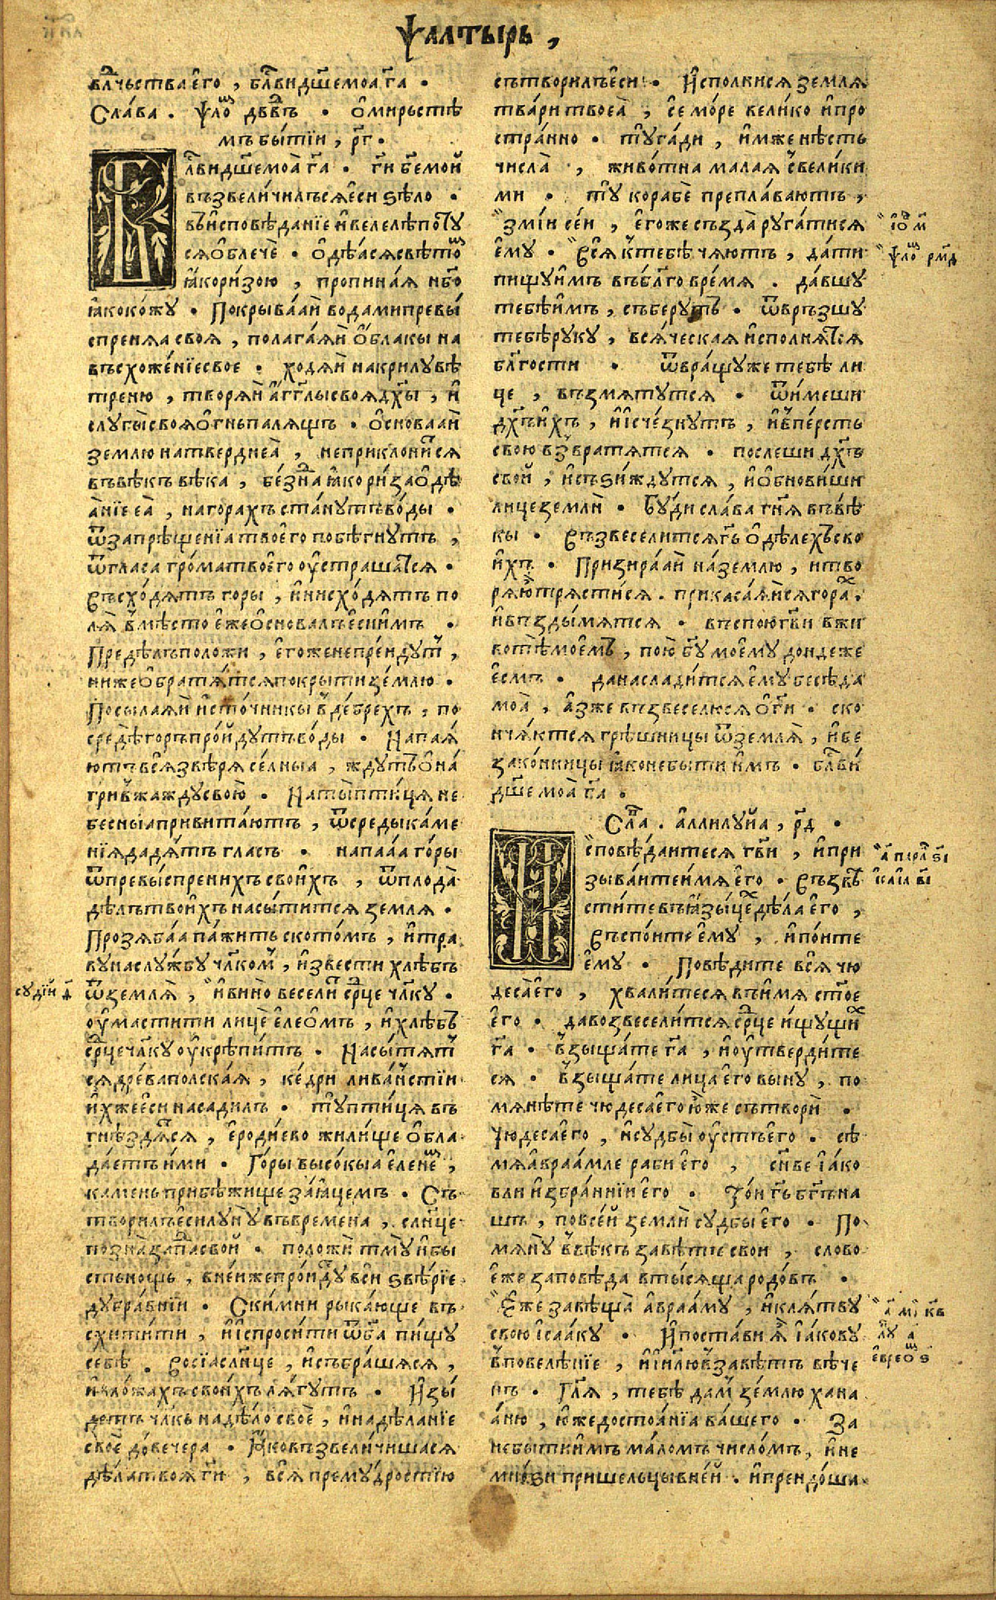 Ѱалтырь ,
вл҃чьства е҆го̀ , бл҃ви дш҃е моа̀ г҃а ·
Сла́ва · ѱло́ дв҃въ · ѡ҆ мирьстѣ
мъ бы́тїи , р҃г ·
Бл҃ви дш҃е моа̀ г҃а · г҃и бж҃е мой
възвеличилъся е҆сѝ ѕѣло̀ ·
въ и҆сповѣданїе и҆ велелѣпоту
ся ѡ҆блечѐ · ѻ҆дѣася свѣто
ꙗ҆ко ризою , пропина́я нб҃о
ꙗ҆ко кожу · Покрыва́ай вода́ми превы́
спреняа своя̀ , полага́яй ѻ҆́блакы на
въсхоже́нїе свое · ходя́й на крилу̀ вѣ
треню , творя́й а҆́гг҃лы своя̀ дх҃ы , и҆
слугы̀ своя̀ ѻ҆гнь паля́щъ · ѻ҆снова́ай
землю на тверди еа̀ , не приклони́тся
въ вѣкъ вѣка , бе́здна ꙗ҆ко ри́за ѻ҆дѣ
а́нїе еа̀ , на гора́хъ ста́нутъ во́ды ·
ѿ запрѣще́нїа твоего̀ побѣ́гнутъ ,
ѿ гласа гро́ма твоего̀ ѹ҆страша́тся ·
Въсхо́дятъ горы , и҆ нисхо́дятъ по
ля̀ в мѣ́сто е҆́же ѻ҆снова́лъ е҆сѝ и҆́мъ ·
Предѣ́лъ положи , е҆го́же не пре́идут ,
ниже ѻ҆братя́тся покры́ти зе́млю ·
Посыла́яй и҆сто́чникы в де́брехъ , по
средѣ̀ горъ про́йдутъ во́ды · Напая́
ютъ вся̀ звѣ́ря се́лныа , жду́тъ ѻ҆на́
гри в жажду свою̀ · На ты̀ пти́ця не
бесны́а привита́ютъ , ѿ среды̀ ка́ме
нїя дадя́тъ гласъ · напаа́а го́ры
ѿ превы́спренихъ свои́хъ , ѿ плода̀
дѣ́лъ твои́хъ насы́тится земля ·
Прозяба́а па́жить ското́мъ , и҆ тра
ву на слу́жбу чл҃ком , и҆звести хлѣ́бъ
ѿ землѧ̀ , и҆ вино̀ весели́т ср҃це чл҃ку ·
ѹ҆мастити лицѐ е҆ле́омъ , и҆ хлѣ́бъ
ср҃це чл҃ку ѹ҆крѣпи́тъ · Насы́тят
ся древа̀ полска́я , ке́дри лива́нстїи
и҆́хже е҆сѝ насади́лъ · ту̀ пти́ця въ
гнѣздя́тся , е҆роді́ево жили́ще ѻ҆бла
да́етъ и҆́ми · Го́ры высо́кыа е҆ле́не ,
камень прибѣ́жище за́яцемъ · Съ
твори́лъ е҆сѝ луну̀ въ времена̀ , сл҃нце
позна̀ за́пад свой · положѝ тму̀ и҆ бы
сть но́щь , в не́йже про́йдутъ вси ѕвѣ́рїе
дубра́внїи · Ски́мни рыка́юще въ
схи́тити , и҆ и҆спроси́ти ѿ бг҃а пи́щу
себѣ̀ · восїа сл҃нце , и҆ събра́шяся ,
и҆ ло́жахъ свои́хъ ля́гутъ · И҆зы́
детъ чл҃къ на дѣ́ло своѐ , и҆ на дѣ́ланїе
своѐ до ве́чера · Ꙗ҆́ко възвели́чишася
дѣла̀ твоя̀ г҃и , вся̀ прему́дростїю
сътвори́лъ е҆сѝ · И҆спо́лнися земля̀
тва́ри твоеа̀ , сѐ мо́ре велико и҆ про
стра́нно · ту̀ га́ди , и҆́мже нѣ́сть
числа̀ , живо́тна ма́лая с вели́ки
ми · ту̀ кораблѣ̀ препла́вають ,
змі́и се́й , е҆го́же созда̀ руга́тися
е҆му̀ · Вся̀ к тебѣ̀ ча́ютъ , да́ти
пи́щу и҆́мъ въ бл҃го вре́мя . да́вшу
тебѣ̀ и҆́мъ , събeру́тъ · ѿвръ́зшу
тебѣ̀ ру́ку , вся́ческая и҆спо́лнятся
бл҃гости · ѿвра́щшу же тебѣ̀ ли
це , възмяту́тся · ѿи́меши
дх҃ъ и҆́хъ , и҆ и҆сче́знутъ , и҆ въ пе́рсть
свою̀ възвратя́тся · по́слеши дх҃ъ
свой , и҆ съѕи́ждутся , и҆ ѻ҆бнови́ши
лице землѝ · Бу́ди сла́ва гн҃я въ вѣ́
кы · Възвесели́тся г҃ь ѻ҆ дѣ́лехъ сво
и́хъ · Призира́ай на зе́млю , и҆ тво
ря́ю трясти́ся . прикаса́яйся гора́х ,
и҆ въздымя́тся · въспою̀ гв҃и в жи
вотѣ̀ мое́мъ , пою̀ бг҃у моему̀ до́ндеже
е҆́смъ · да насла́дится е҆му̀ бесѣ́да
моа̀ , а҆́з же възвеселю́ся ѻ҆ г҃и · ско
нча́ются грѣ́шницы ѿ земля̀ , и҆ бе
зако́нницы ꙗ҆ко не бы́ти и҆́мъ · бл҃ви
дш҃е моа̀ г҃а ·
Сл҃а . а҆ллилу́иа , р҃д ·
Исповѣ́даитеся гв҃и , и҆ при
зыва́ите и́мя е҆го · Възвѣ
стите въ ꙗ҆зы́цех дѣла̀ е҆го ,
Въспо́ите е҆му , и҆ по́ите
е҆му · Повѣдите вся̀ чю
деса̀ е҆го , хвали́теся въ и҆мя ст҃ое
е҆го · да возвесели́тся ср҃це и҆щущи́х
г҃а · взыщѣ́те г҃а , и҆ ѹ҆тверди́те
ся · взыщѣ́те лица̀ е҆го вы́ну , по
мянѣ́те чюдеса̀ е҆го ꙗ҆́же сътворѝ ·
Чюдеса̀ е҆го , и҆ судбы̀ ѹ҆стъ е҆го · сѣ
мя а҆враа́мле раби е҆го , сн҃ве і҆а́ко
вли и҆збра́ннїи е҆го · То́и г҃ь бг҃ъ на
шъ , по все́й землѝ судбы е҆го · По
мяну̀ в вѣ́къ завѣ́тъ свои , слово
е҆́же заповѣ́да в ты́сяща родо́въ ·
Е҆́же завѣща̀ а҆враа́му , и҆ кля́тву
свою і҆саа́ку · И҆ поста́ви я҆̀ і҆а́кову
в повелѣ́нїе , и҆ і҆и҃лю в завѣ́тъ вѣ́че
нъ · Гл҃я , тебѣ̀ дам зе́млю хана
а́ню , ю҆́же достоа́нїа ва́шего · За
не бы́ти и҆мъ ма́ломъ число́мъ , и҆ не
мно́ѕи прише́льцы в не́й . и҆ преидо́ша